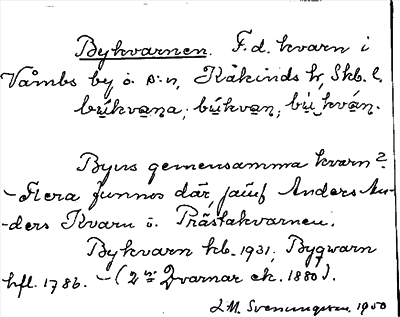 Bykvarnen. F.d. kvarn i
Våmbs by o. s:n, Kåkinds hr, Skb. l.
bu̱kvaṉa; bu̱kvaṉ; bu̱kváṉ.
Byns gemensamma kvarn?
- Flera funnos där, jämf Anders An-
-ders Kvarn o. Prästakvarnen.
Bykvarn hb. 1931, Byqwarn
hfl. 1786. - (2ne Qvarnar ek. 1880).
1950